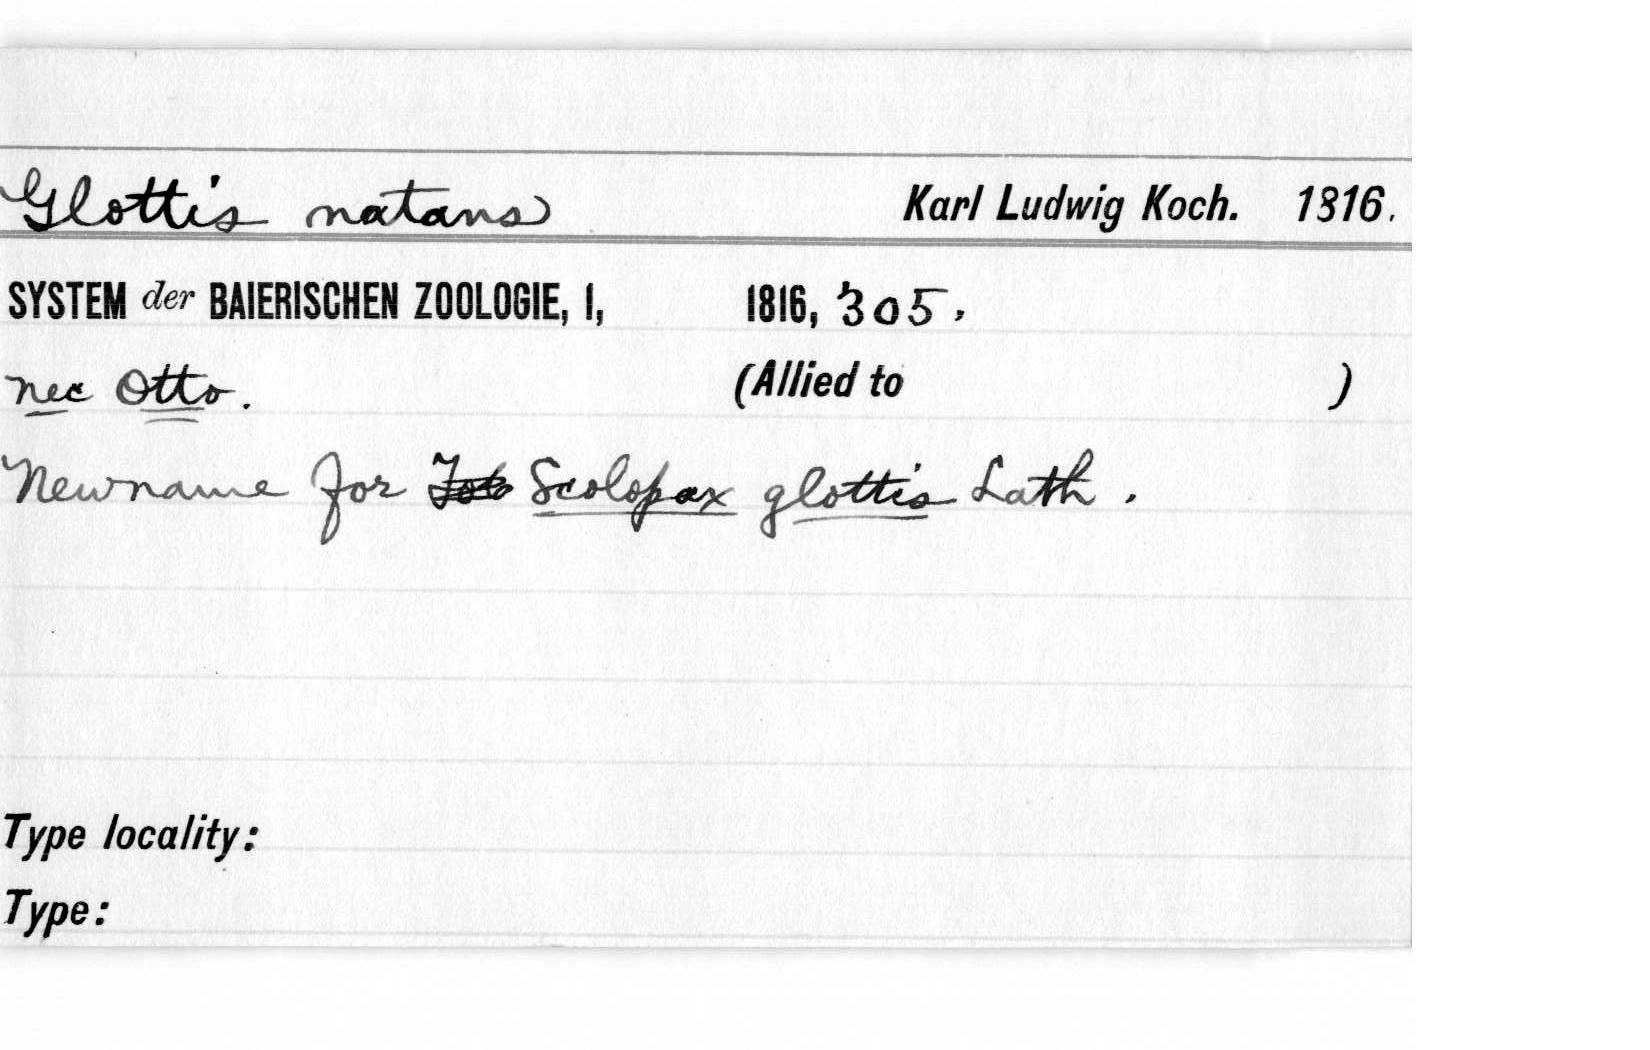 Glottis natans Karl Ludwig Koch. 1816.
SYSTEM der BAIERISCHEN ZOOLOGIE, I, 1816, 305.
nec Otto. (Allied to )
New name for Scolopax glottis Lath.
Type locality:
Type: